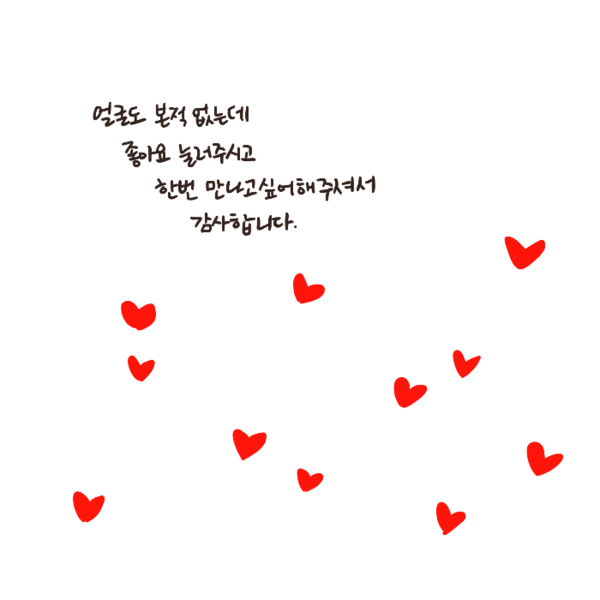 얼굴도 본적 없는데
좋아요 눌러주시고
한번 만나고싶어해주셔서
감사합니다.